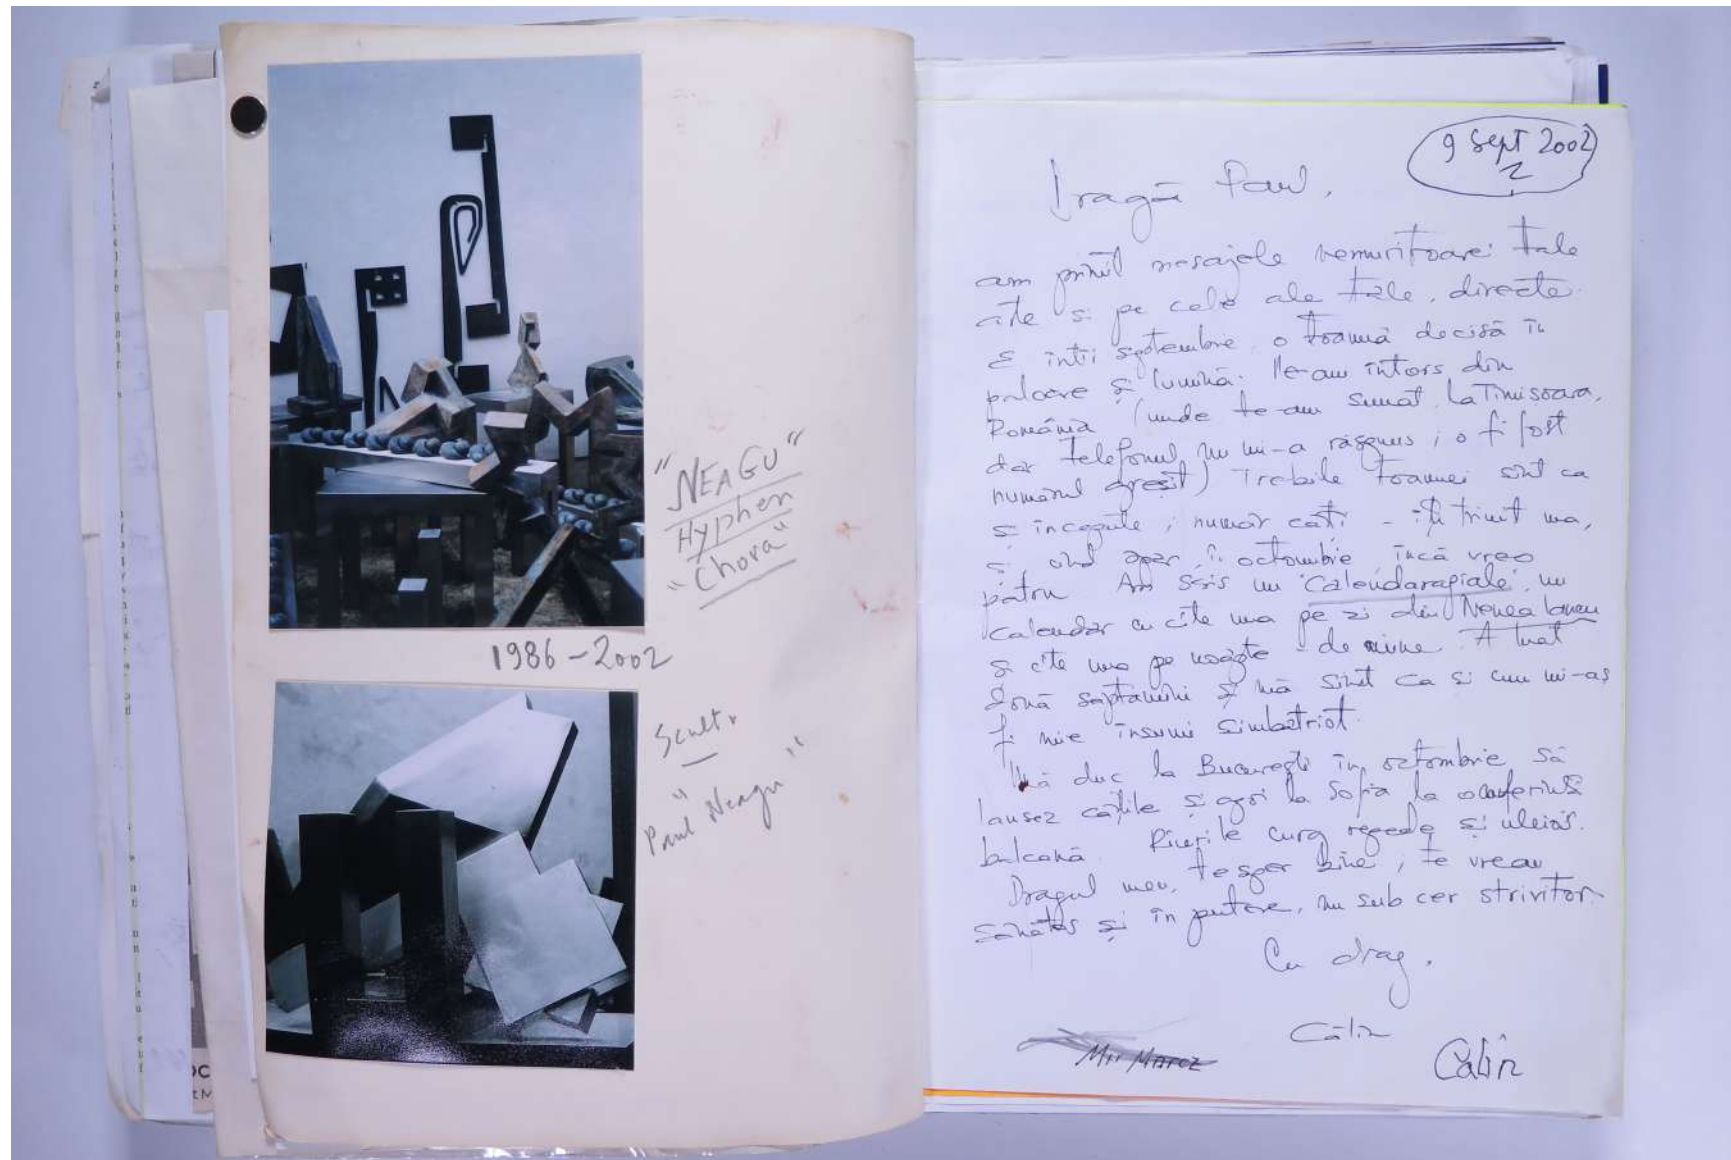 "NEAGU"
Hyphen
"Chora"
1986-2002
Scultr
"Paul Neagu"
9 Sept 2002
2
Dragă Paul,
am primit mesajele nemuritoarei tale
cîte și pe cele ale tale, directe.
E întîi septembrie, o toamnă decisă în
paloare și lumină. M-am întors din
România (unde te-am sunat, la Timișoara,
dar telefonul nu mi-a răspuns; o fi fost
numărul greșit) Trebile toamnei sînt ca
și începute; număr cărți - îți trimit una,
și cînd apar, în octombrie încă vreo
patru. Am scris un "Calendaragiale", un
calendar cu cîte una pe zi din Nenea Iancu
și cîte una pe noapte - de mine. A luat
două săptămîni și mă simt ca și cum mi-aș
fi mie însumi simbătriot.
Mă duc la București în octombrie să
lansez cărțile și apoi la Sofia la o conferință
balcană. Rîurile curg repede și uleios.
Dragul meu, te sper bine, te vreau
sănătos și în putere, nu sub cer strivitor.
Cu drag,
Călin
Călin